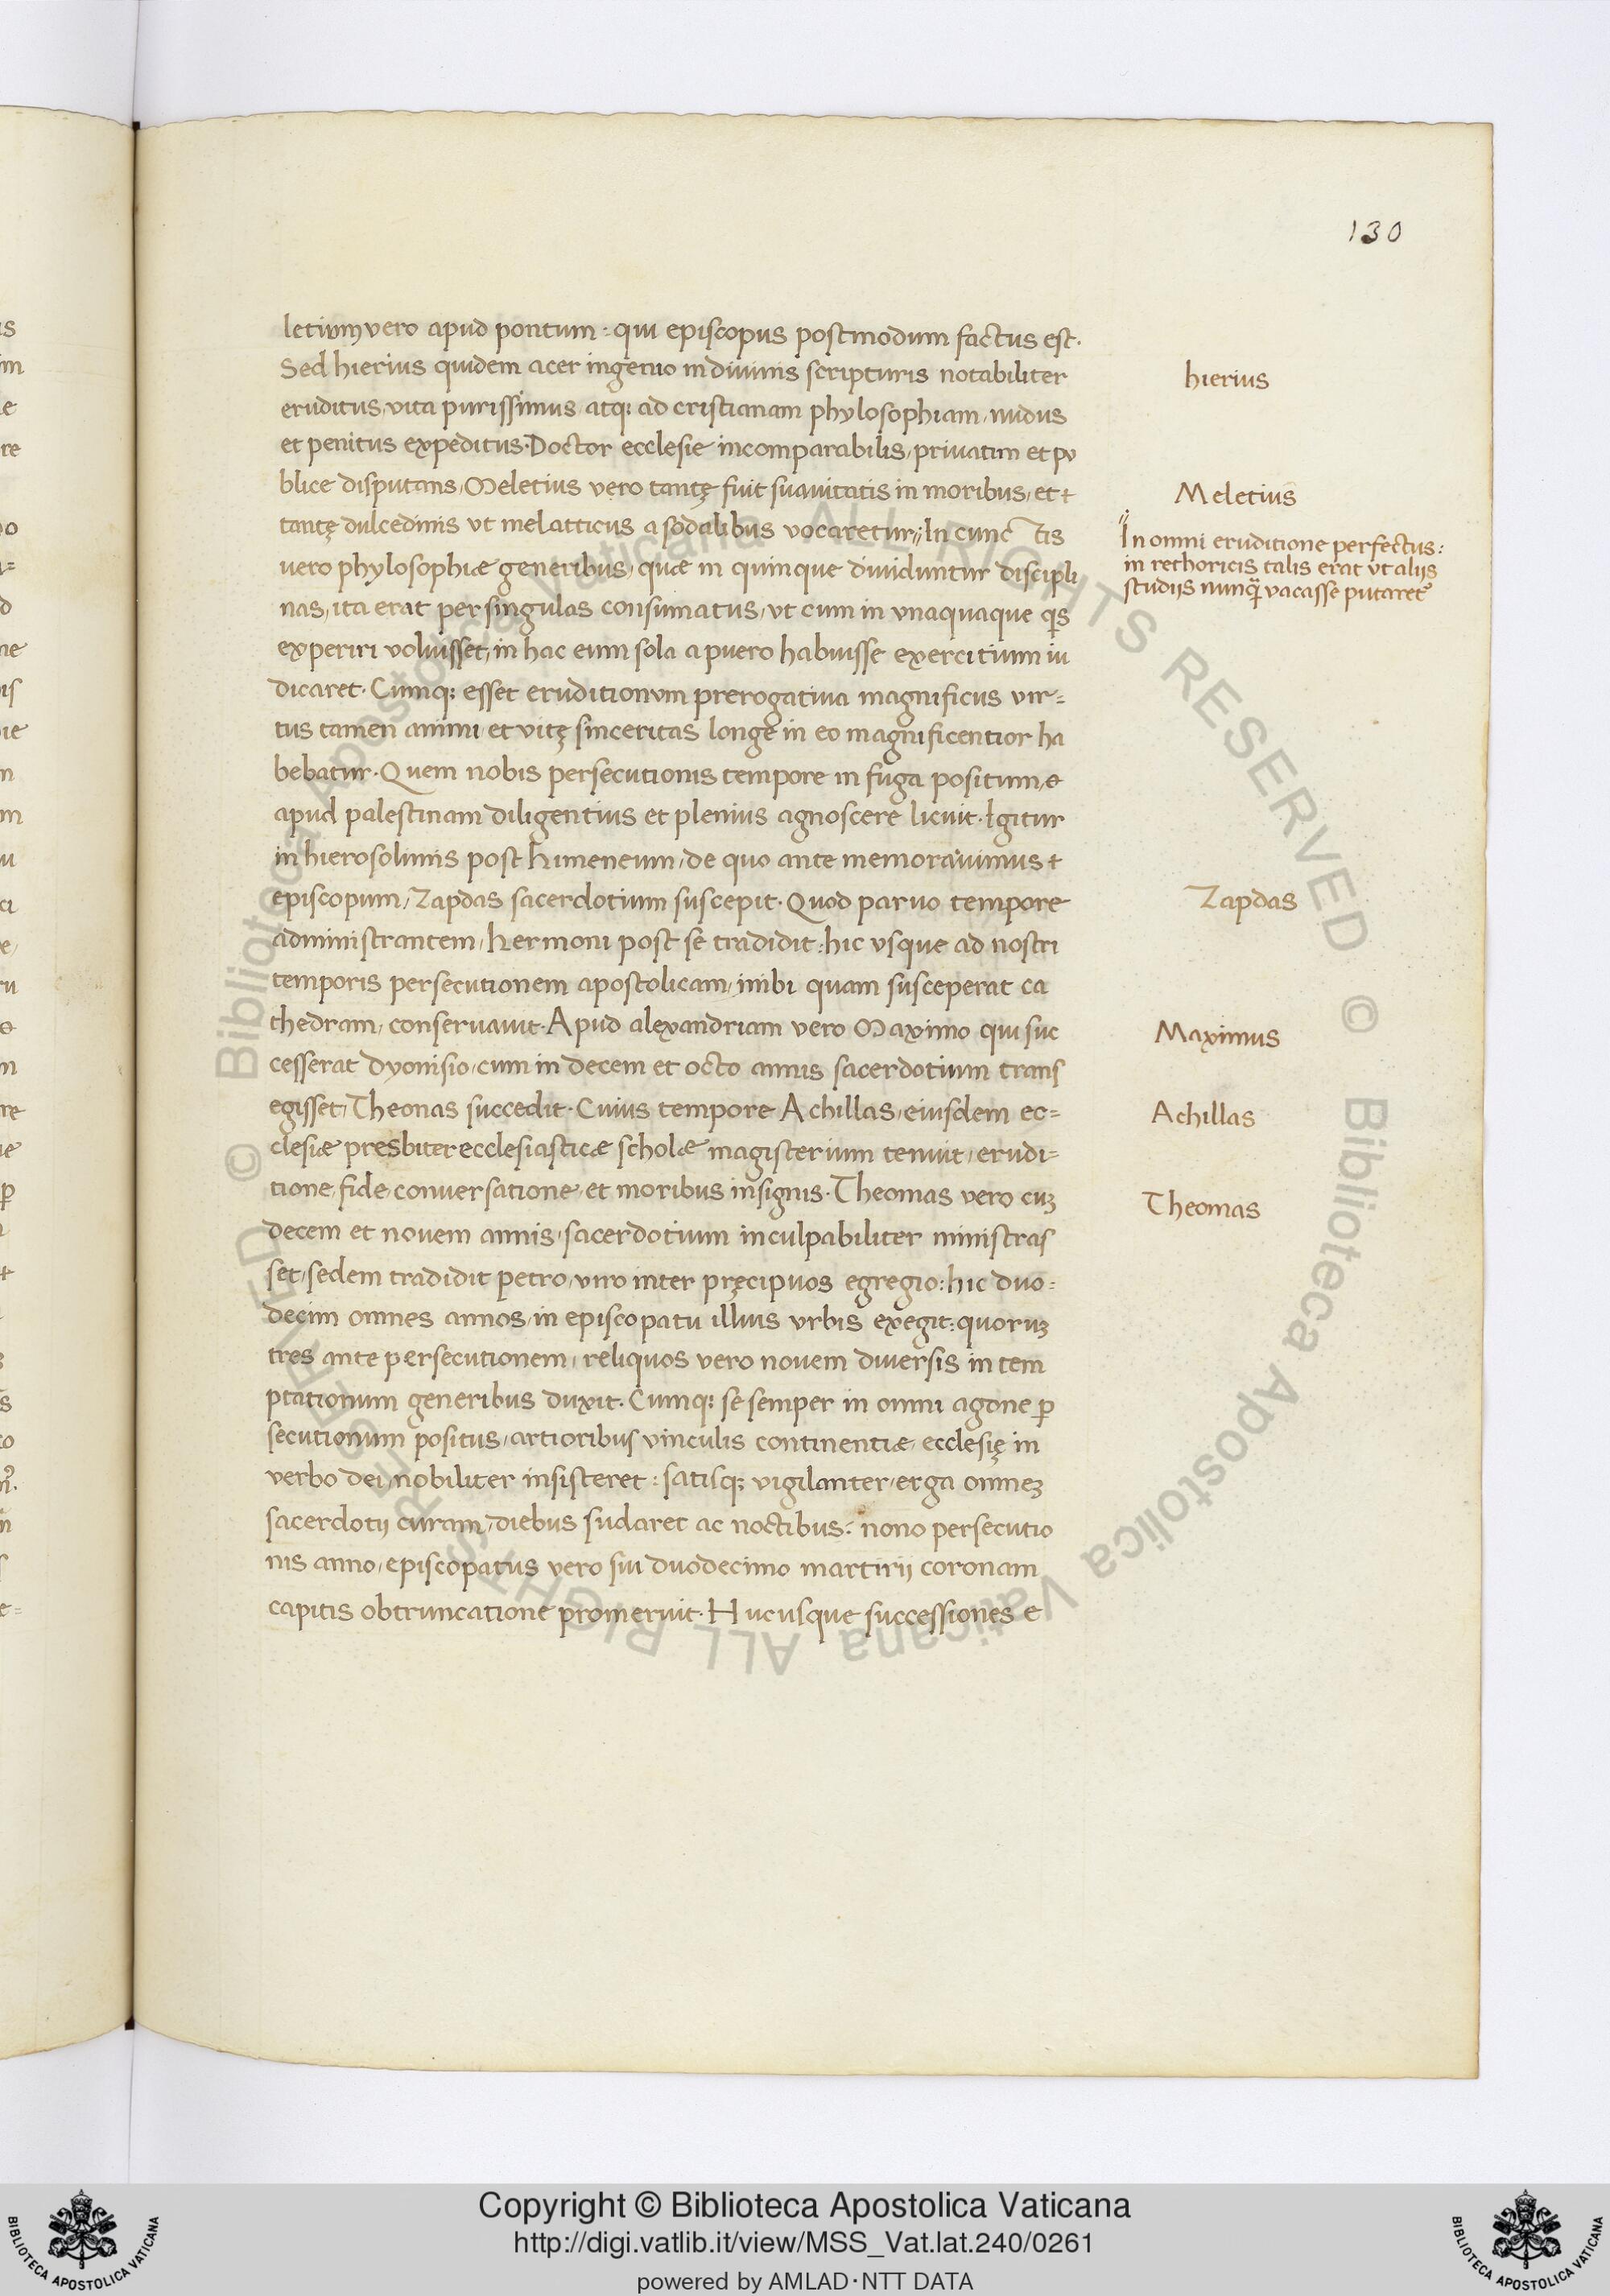 130
letium vero apud pontum : qui episcopus postmodum factus est.
Sed hierius quidem acer ingenio in diuinis scripturis notabiliter
eruditus, vita purissimus atq; ad cristianam phylosophiam, nudus
et penitus expeditus. Doctor ecclesie incomparabilis, priuatim et pu
blice disputans, Meletius vero tantę fuit suauitatis in moribus, et
tantę dulcedinis vt mel atticus a sodalibus vocaretur // In cunctis
uero phylosophiæ generibus, quæ in quinque diuiduntur discipli
nas, ita erat per singulas consumatus, vt cum in vnaquaque q̃s
experiri voluisset, in hac eum sola a puero habuisse exercitium iu
dicaret. Cumq; esset eruditionum prerogatiua magnificus vir=
tus tamen animi et vitę sinceritas longe in eo magnificentior ha
bebatur. Quem nobis persecutionis tempore in fuga positum, &
apud palestinam diligentius et plenius agnoscere licuit. Igitur
in hierosolimis post himeneum, de quo ante memorauimus
episcopum, Zapdas sacerdotium suscepit. Quod paruo tempore
administrantem, hermoni post se tradidit : hic vsque ad nostri
temporis persecutionem apostolicam, inibi quam susceperat ca
thedram, conseruauit. Apud alexandriam vero Maximo qui suc
cesserat dyonisio, cum in decem et octo annis sacerdotium trans
egisset, Theonas succedit. Cuius tempore Achillas, eiusdem ec=
clesiæ presbiter ecclesiasticæ scholæ magisterium tenuit, erudi=
tione, fide, conuersatione, et moribus insignis. Theomas vero cuȝ
decem et nouem annis, sacerdotium inculpabiliter ministras
set, sedem tradidit petro, viro inter pręcipuos egregio : hic duo=
decim omnes annos, in episcopatu illius vrbis exegit : quoruȝ
tres ante persecutionem, reliquos vero nouem diuersis in tem
ptationum generibus duxit. Cumq; se semper in omni agone ꝑ
secutionum positus, artioribus vinculis continentiæ, ecclesię in
verbo dei, nobiliter insisteret : satisq; vigilanter, erga omneȝ
sacerdotij curam, diebus sudaret ac noctibus : nono persecutio
nis anno, episcopatus vero sui duodecimo martirij coronam
capitis obtruncatione promeruit. Hucusque successiones &
hierius
Meletius
// In omni eruditione perfectus :
in rethoricis talis erat vt alijs
studijs nunq̃ vacasse putaret
Zapdas
Maximus
Achillas
Theomas
© Biblioteca Apostolica Vaticana ALL RIGHTS RESERVED © Biblioteca Apostolica Vaticana ALL RIGHTS RESERVED
Copyright © Biblioteca Apostolica Vaticana
http://digi.vatlib.it/view/MSS_Vat.lat.240/0261
powered by AMLAD · NTT DATA
BIBLIOTECA APOSTOLICA VATICANA
BIBLIOTECA APOSTOLICA VATICANA